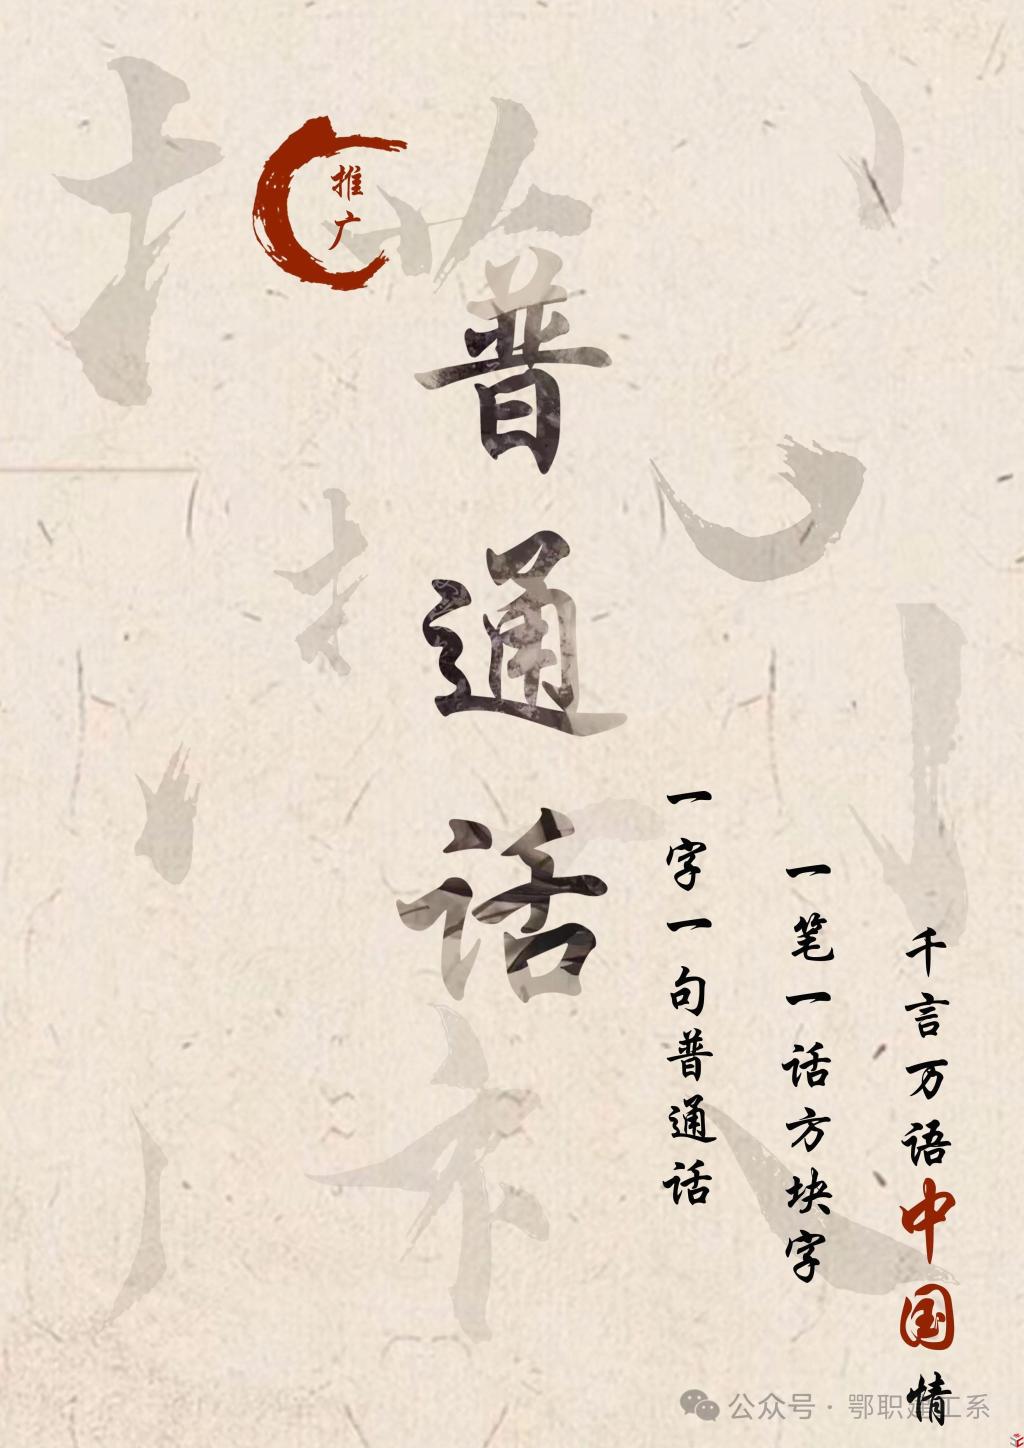 推广
普通话
一字一句普通话
一笔一话方块字
千言万语中国情
公众号·鄂职建工系